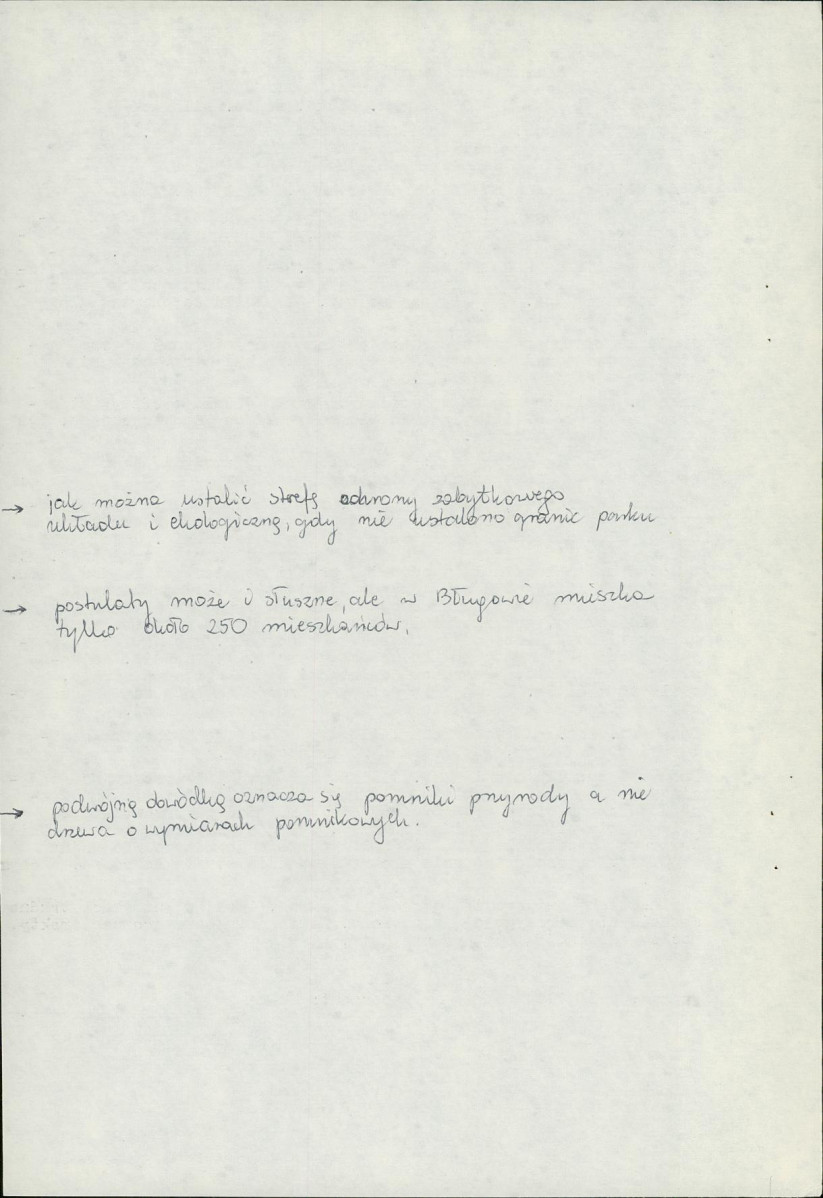 → jak można ustalić strefę ochrony zabytkowego
układu i ekologiczną, gdy nie ustalono granic parku
→ postulaty może i słuszne, ale w Bługowie mieszka
tylko około 250 mieszkańców.
→ podwójną obwódką oznacza się pomniki przyrody a nie
drzewa o wymiarach pomnikowych.